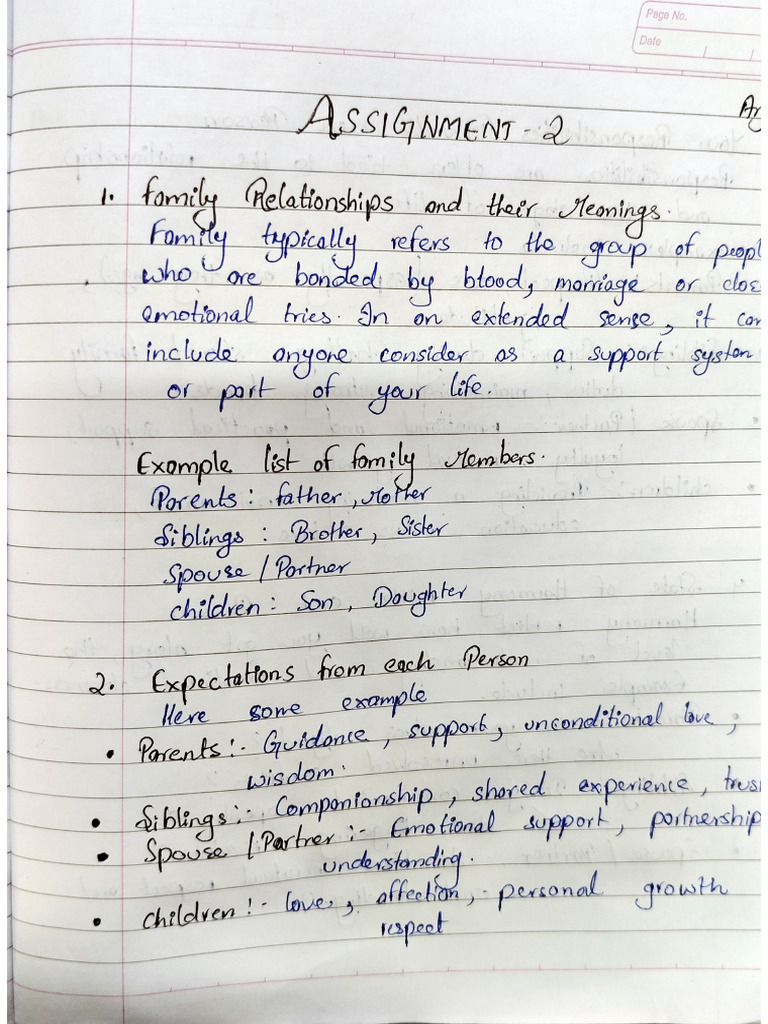 Page No.
Date
Ar
ASSIGNMENT - 2
1. Family Relationships and their Meanings.
Family typically refers to the group of peopl
who are bonded by blood, marriage or clos
emotional tries. In an extended sense, it can
include anyone consider as a support system
or part of your life.
Example list of family Members.
Parents : father, Mother
Siblings : Brother, Sister
Spouse / Partner
children : Son, Daughter
2. Expectations from each Person
Here some example
• Parents :- Guidance, support, unconditional love,
wisdom.
• Siblings :- Companionship, shared experience, trus
• Spouse / Partner :- Emotional support, partnership
understanding.
• children :- love, affection, personal growth
respect